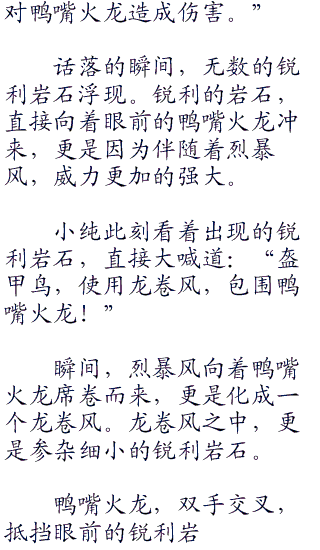 对鸭嘴火龙造成伤害。”
话落的瞬间，无数的锐
利岩石浮现。锐利的岩石，
直接向着眼前的鸭嘴火龙冲
来，更是因为伴随着烈暴
风，威力更加的强大。
小纯此刻看着出现的锐
利岩石，直接大喊道：“盔
甲鸟，使用龙卷风，包围鸭
嘴火龙！”
瞬间，烈暴风向着鸭嘴
火龙席卷而来，更是化成一
个龙卷风。龙卷风之中，更
是参杂细小的锐利岩石。
鸭嘴火龙，双手交叉，
抵挡眼前的锐利岩